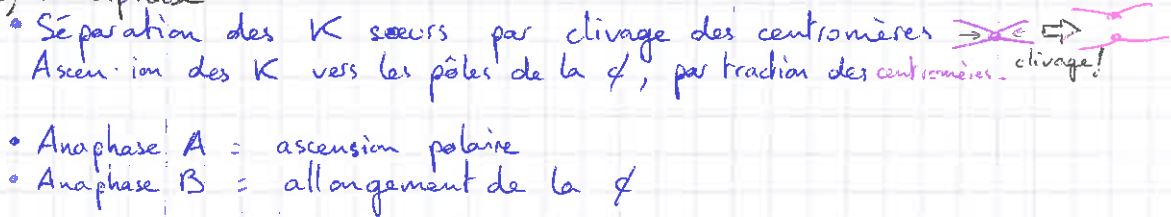 • Séparation des K sœurs par clivage des centromères
Ascension des K vers les pôles de la ¢, par traction des centromères. clivage!
• Anaphase A = ascension polaire
• Anaphase B = allongement de la ¢